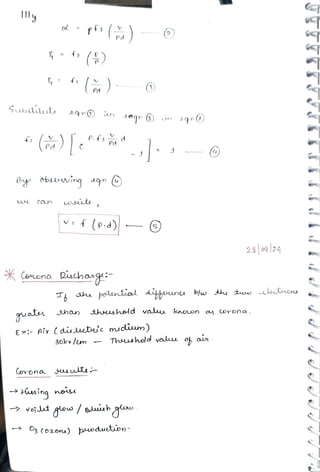 Illy
α = p f₁ (V/Pd) — ②
S₁ = f₂ (E/P)
S₁ = f₂ (V/Pd) — ③
Substitute eqn ② in eqn ③ in eqn ①
f₂ (V/Pd) [ e^{P. f₁ V/Pd d} - 1 ] = 1 — ④
By observing eqn ④
we can write,
V = f (p.d) — ⑤
28/09/24
* Corona Discharge:-
If the potential difference b/w the two electrons
greater than threshold value known as corona.
Ex:- Air (dielectric medium)
30kv/cm - Threshold value of air
Corona results:-
→ Hissing noise
→ voilet glow / Bluish glow.
→ O₃ (ozone) production.